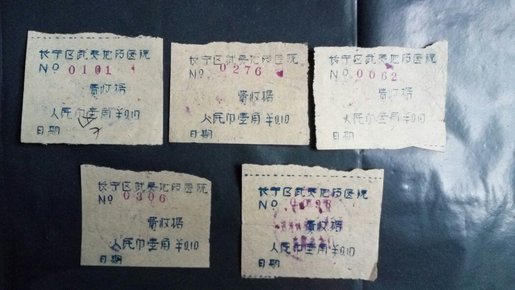 长宁区武夷地段医院
No 0101
费收据
人民币壹角￥0.10
日期
长宁区武夷地段医院
No 0276
费收据
人民币壹角￥0.10
日期
长宁区武夷地段医院
No 0062
费收据
人民币壹角￥0.10
日期
长宁区武夷地段医院
No 0306
费收据
人民币壹角￥0.10
日期
长宁区武夷地段医院
No
费收据
人民币壹角￥0.10
日期